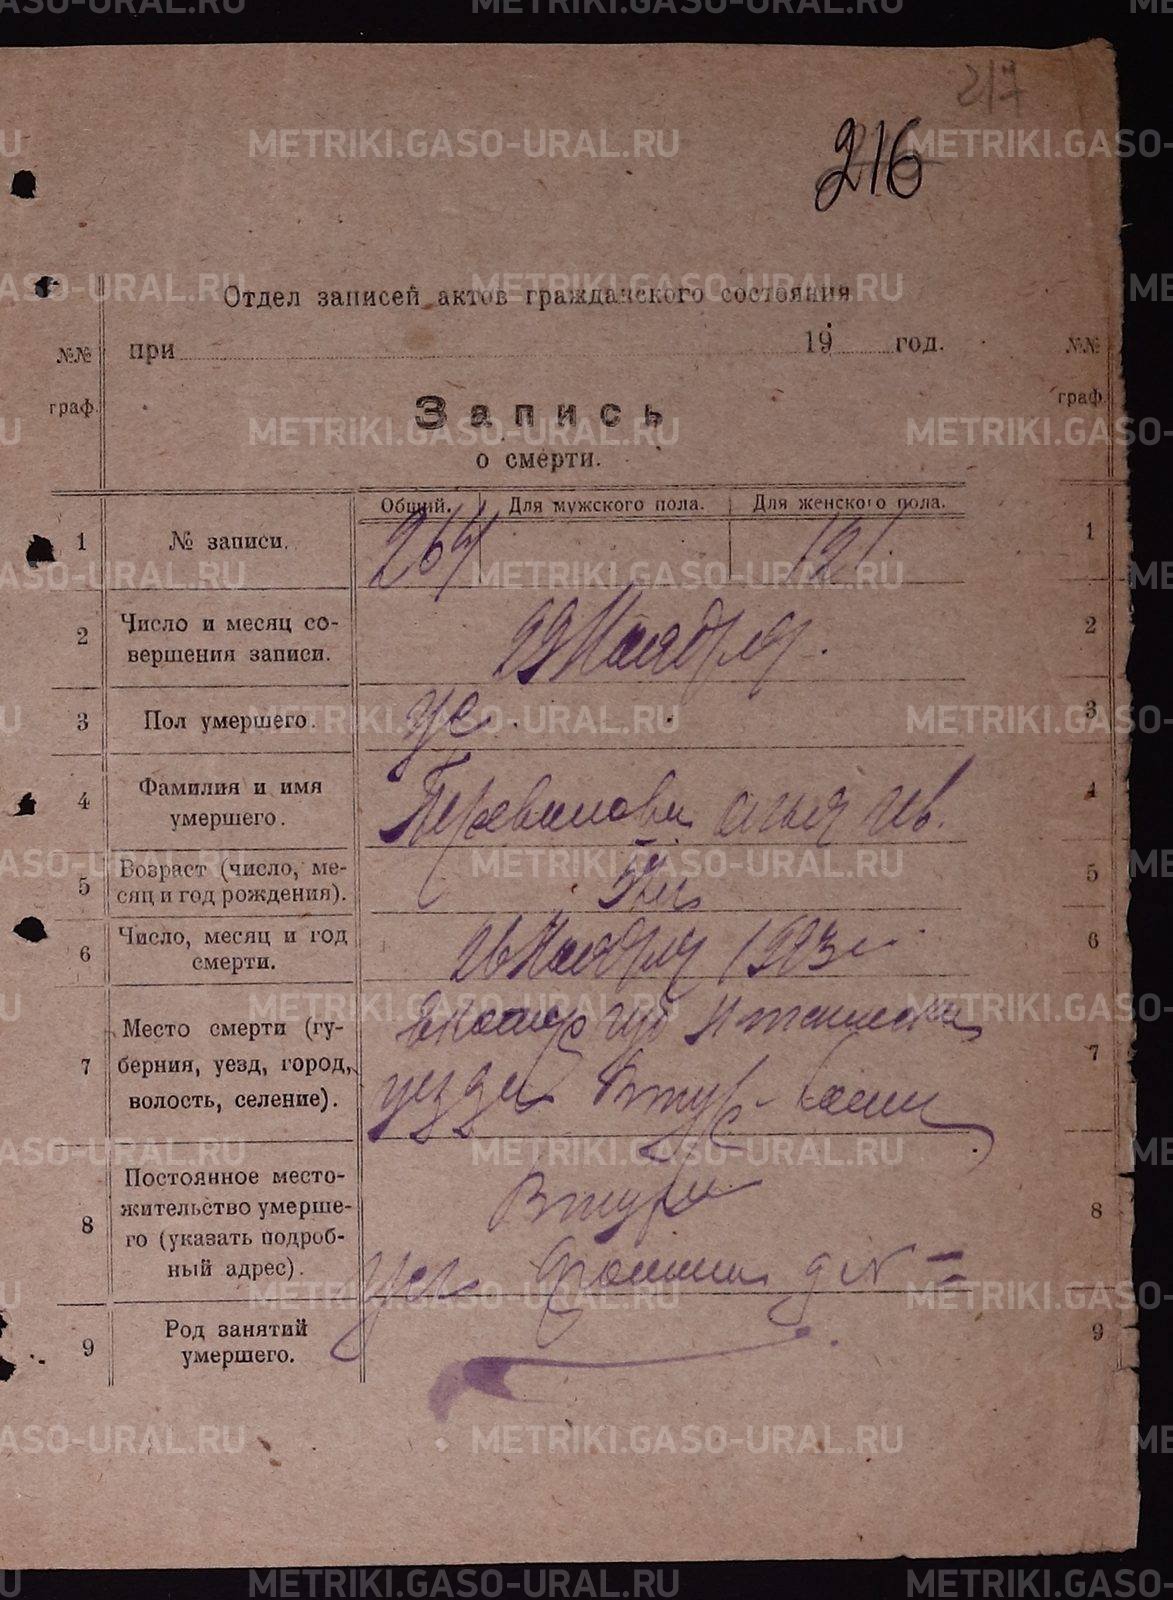 217
216
Отдел записей актов гражданского состояния
№№ при 19 год. №№
граф. граф.
Запись
о смерти.
Общий. Для мужского пола. Для женского пола.
1 № записи. 264 121 1
2 Число и месяц со-
вершения записи. 29 Ноября. 2
3 Пол умершего. же. 3
4 Фамилия и имя
умершего. Перевалова 4
5 Возраст (число, ме-
сяц и год рождения). 5
6 Число, месяц и год
смерти. 26 Ноября 1923 г 6
7 Место смерти (гу-
берния, уезд, город,
волость, селение). Екатер губ
уезда 7
8 Постоянное место-
жительство умерше-
го (указать подроб-
ный адрес). 8
9 Род занятий
умершего. 9
METRIKI.GASO-URAL.RU